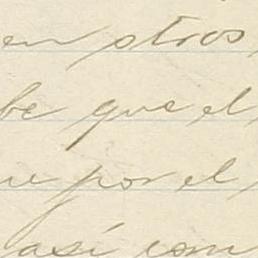 en otros,
be que el
por el
así com